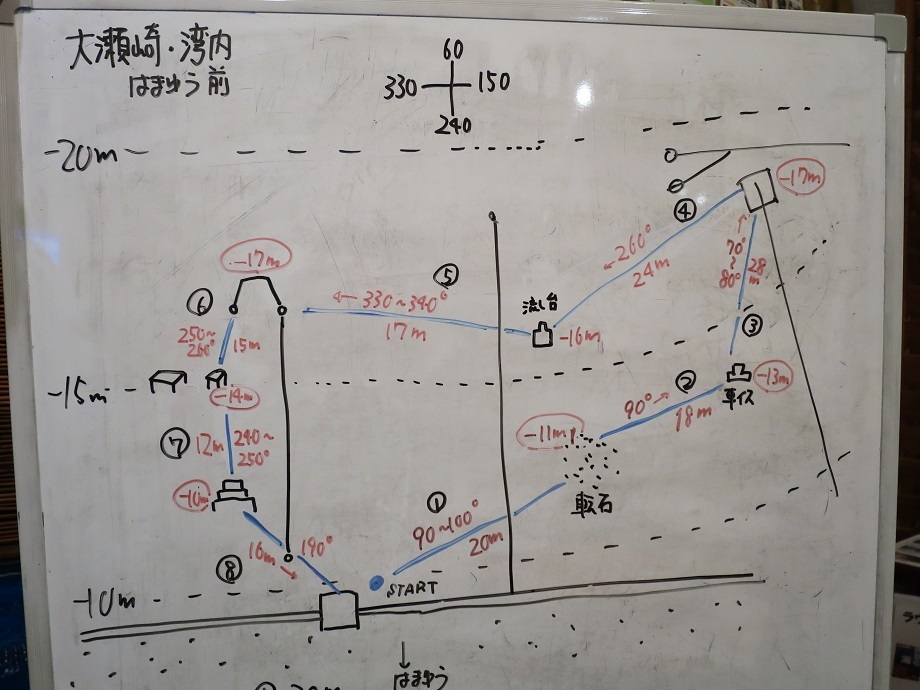 大瀬崎・湾内
はまゆう前
60
330
150
240
-20m
④
-17m
←260°
24m
70°
~
80°
→
28
m
-17m
⑤
←330~340°
17m
流し台
-16m
⑥
250~
260°
15m
③
-15m
-14m
②
90°→
18m
車イス
-13m
-11m
転石
⑦
12m
240~
250°
-10m
①
90~100°
20m
⑧
16m
190°
→
START
-10m
↓
はまゆう